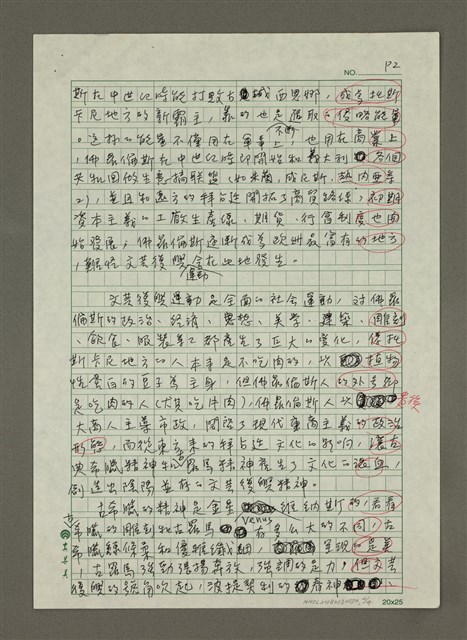 NO. P2
斯在中世紀時能打敗古城西恩那,成為托斯
卡尼地方的新霸主,靠的也是進取的侵略能量
。這樣的能量不僅用在軍事上,也用在商業上
不斷
,佛羅倫斯在中世紀時即開始和義大利各個
共和國做生意搞聯盟(如米蘭、威尼斯、熱內亞等
),並且和遠方的拜占廷開拓了商貿路線,初期
資本主義的工廠生產線、期貨、行會制度也開
始發展,佛羅倫斯逐漸成為歐洲最富有的地方
,難怪文藝復興會在此地發生。
運動
文藝復興運動是全面的社會運動,對佛羅
倫斯的政治、經濟、思想、美學、建築、雕刻
、飲食、服裝等工都產生了巨大的變化,像托
斯卡尼地方的人本來是不吃肉的,以植物
性蛋白的豆子為主食,但佛羅倫斯人的外號卻
是吃肉的人(尤其吃牛肉),佛羅倫斯人以
最後
大商人主導市政,開啟了現代重商主義的政治
形態,而從東方來的拜占廷文化的影響,讓古
典希臘精神和羅馬精神產生了文化的混血,
創造出陰陽並存的文藝復興精神。
古希臘的精神是金星維納斯的,看看
Venus
古希臘的雕刻和古羅馬有多大的不同,古
希臘線條柔和優雅纖細,呈現的是美
,古羅馬強勁張揚奔放,強調的是力,但文藝
復興的號角吹起,波提契利的春神
20x25